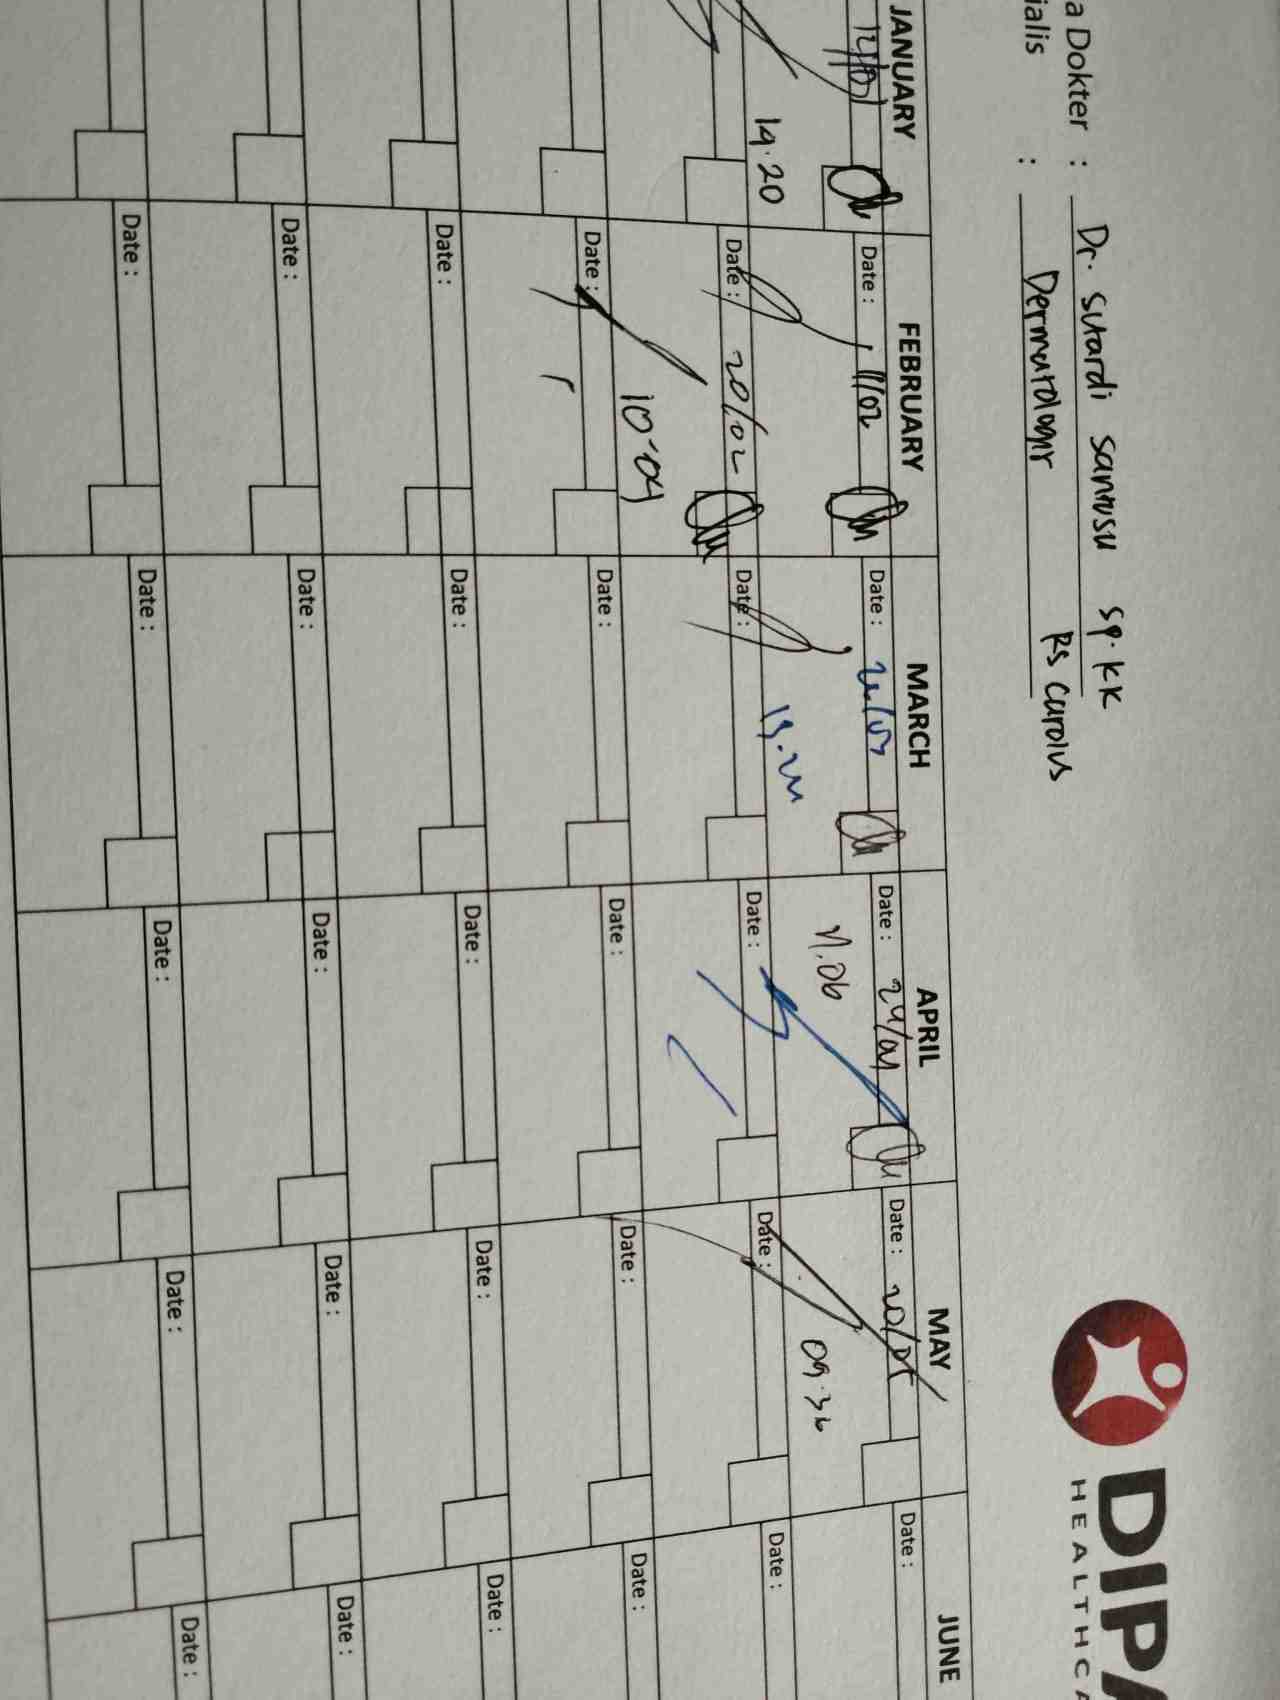 DIPA
HEALTHCA
a Dokter : Dr. Sutardi
sp.KK
ialis : RS Carolus
JANUARY FEBRUARY MARCH APRIL MAY JUNE
12/01 Date : 11/02 Date : Date : 24/04 Date : 20/05 Date :
19.20 Date : 20/02 Date : Date : Date : Date :
10.04 11.06 09.36
Date : Date : Date : Date : Date :
Date : Date : Date : Date : Date :
Date : Date : Date : Date : Date :
Date : Date : Date : Date : Date :